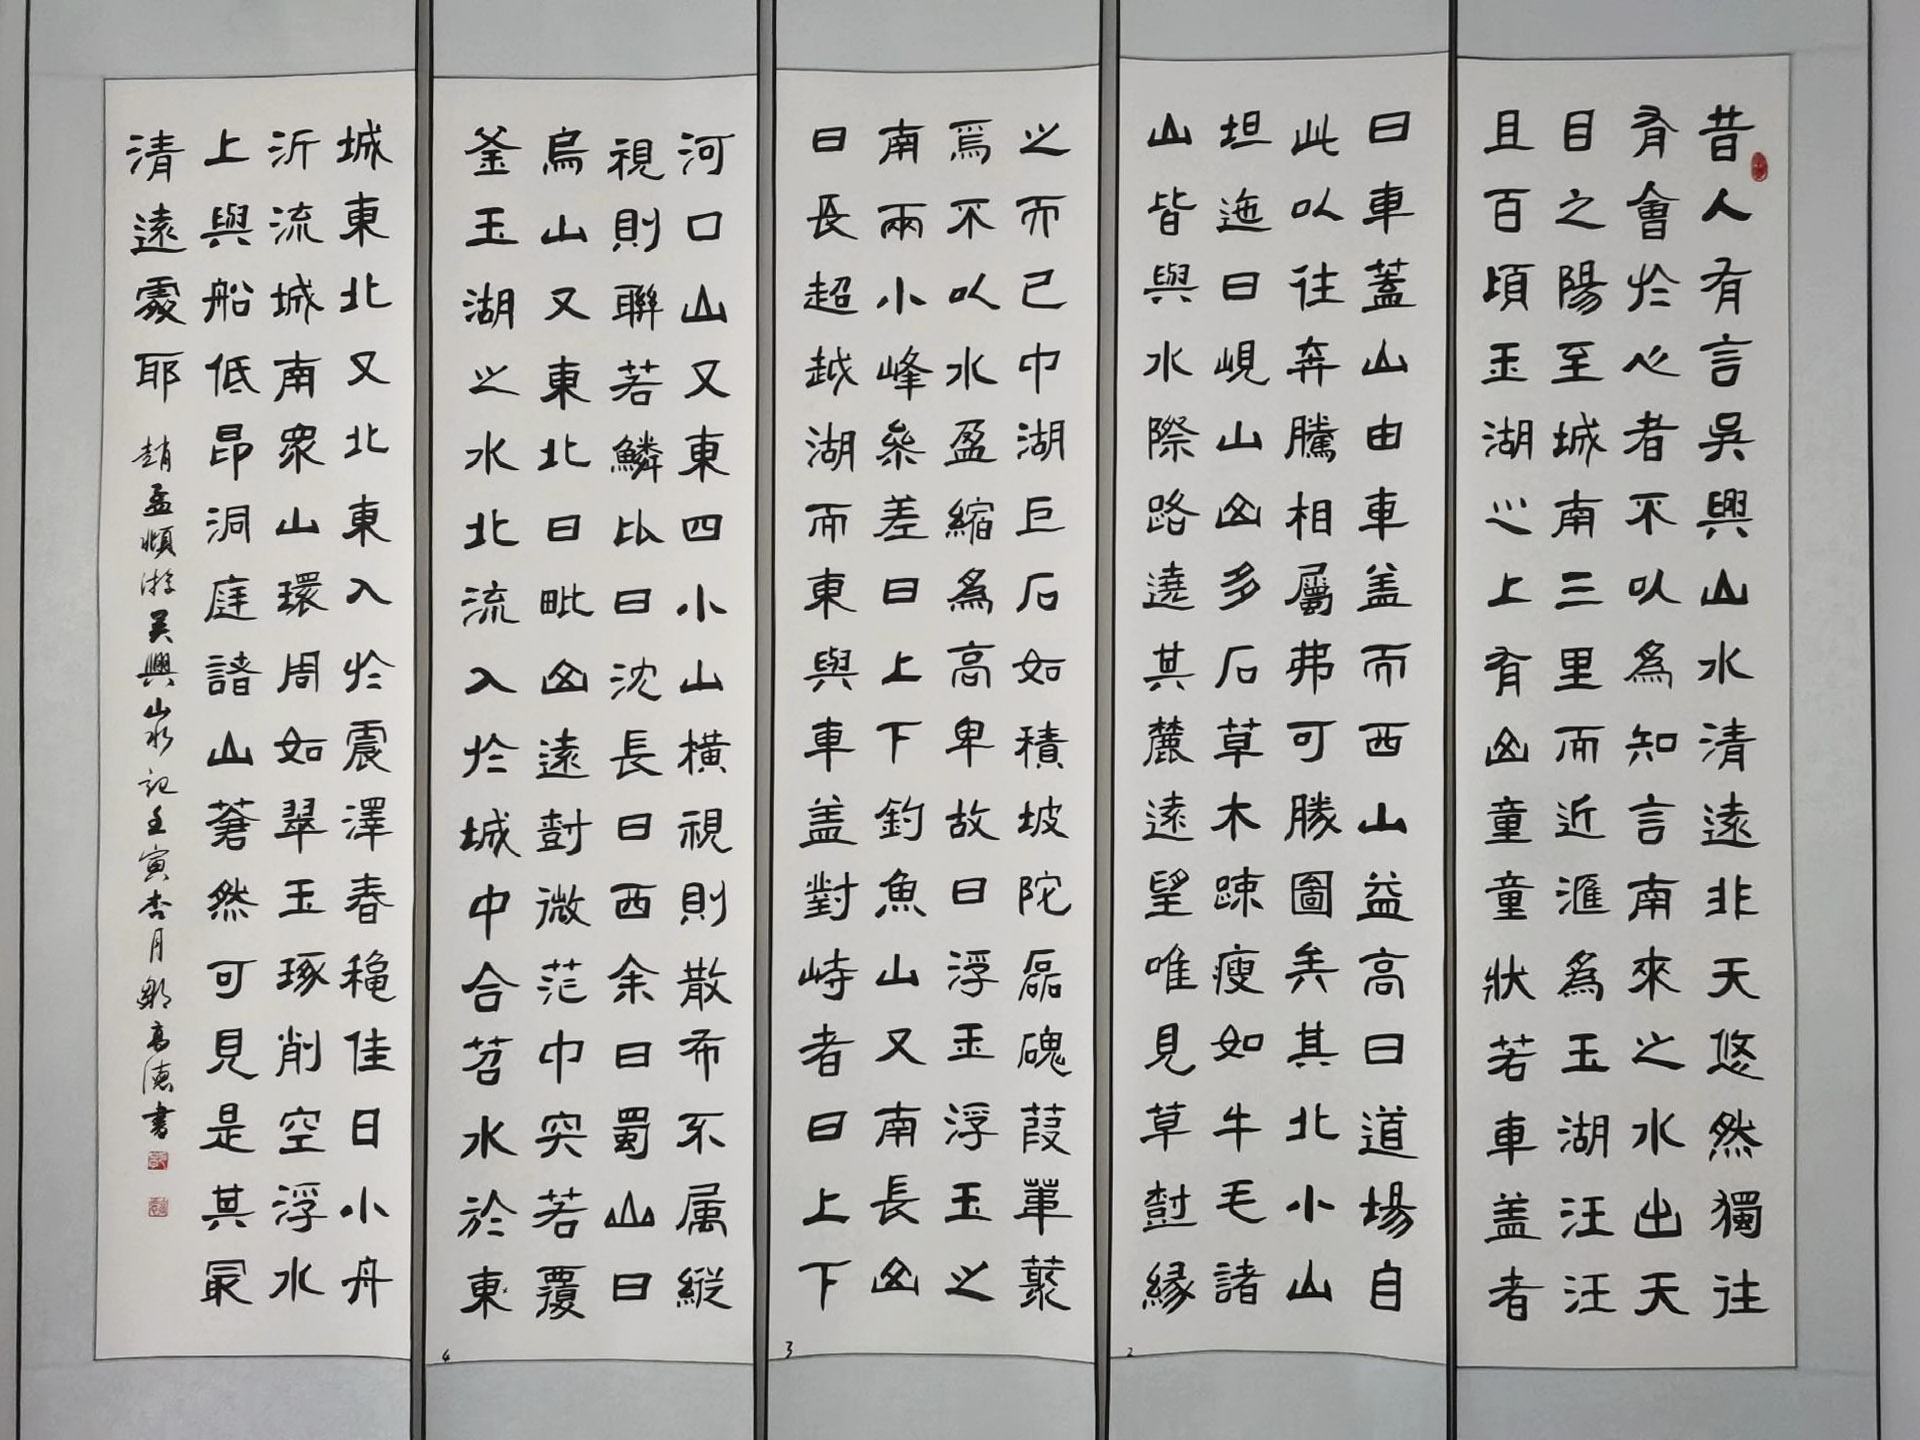 昔人有言吳興山水清遠非天悠然獨往
有會於心者不以為知言南來之水出天
目之陽至城南三里而近滙為玉湖汪汪
且百頃玉湖之上有山童童狀若車盖者
曰車蓋山由車盖而西山益高曰道場自
此以往奔騰相屬弗可勝圖矣其北小山
坦迤曰峴山山多石草木疎瘦如牛毛諸
山皆與水際路遶其麓遠望唯見草樹緣
之而已中湖巨石如積坡陀磊磈葭葦叢
焉不以水盈縮為高卑故曰浮玉浮玉之
南兩小峰參差曰上下釣魚山又南長山
曰長超越湖而東與車盖對峙者曰上下
河口山又東四小山橫視則散布不属縦
視則聯若鱗比曰沈長曰西余曰蜀山曰
烏山又東北曰毗山遠對微茫中突若覆
釜玉湖之水北流入於城中合苕水於東
城東北又北東入於震澤春穐佳日小舟
沂流城南衆山環周如翠玉琢削空浮水
上與船低昂洞庭諸山蒼然可見是其最
清遠處耶
趙孟頫游吳興山水記壬寅杏月鄭高德書
4
3
2